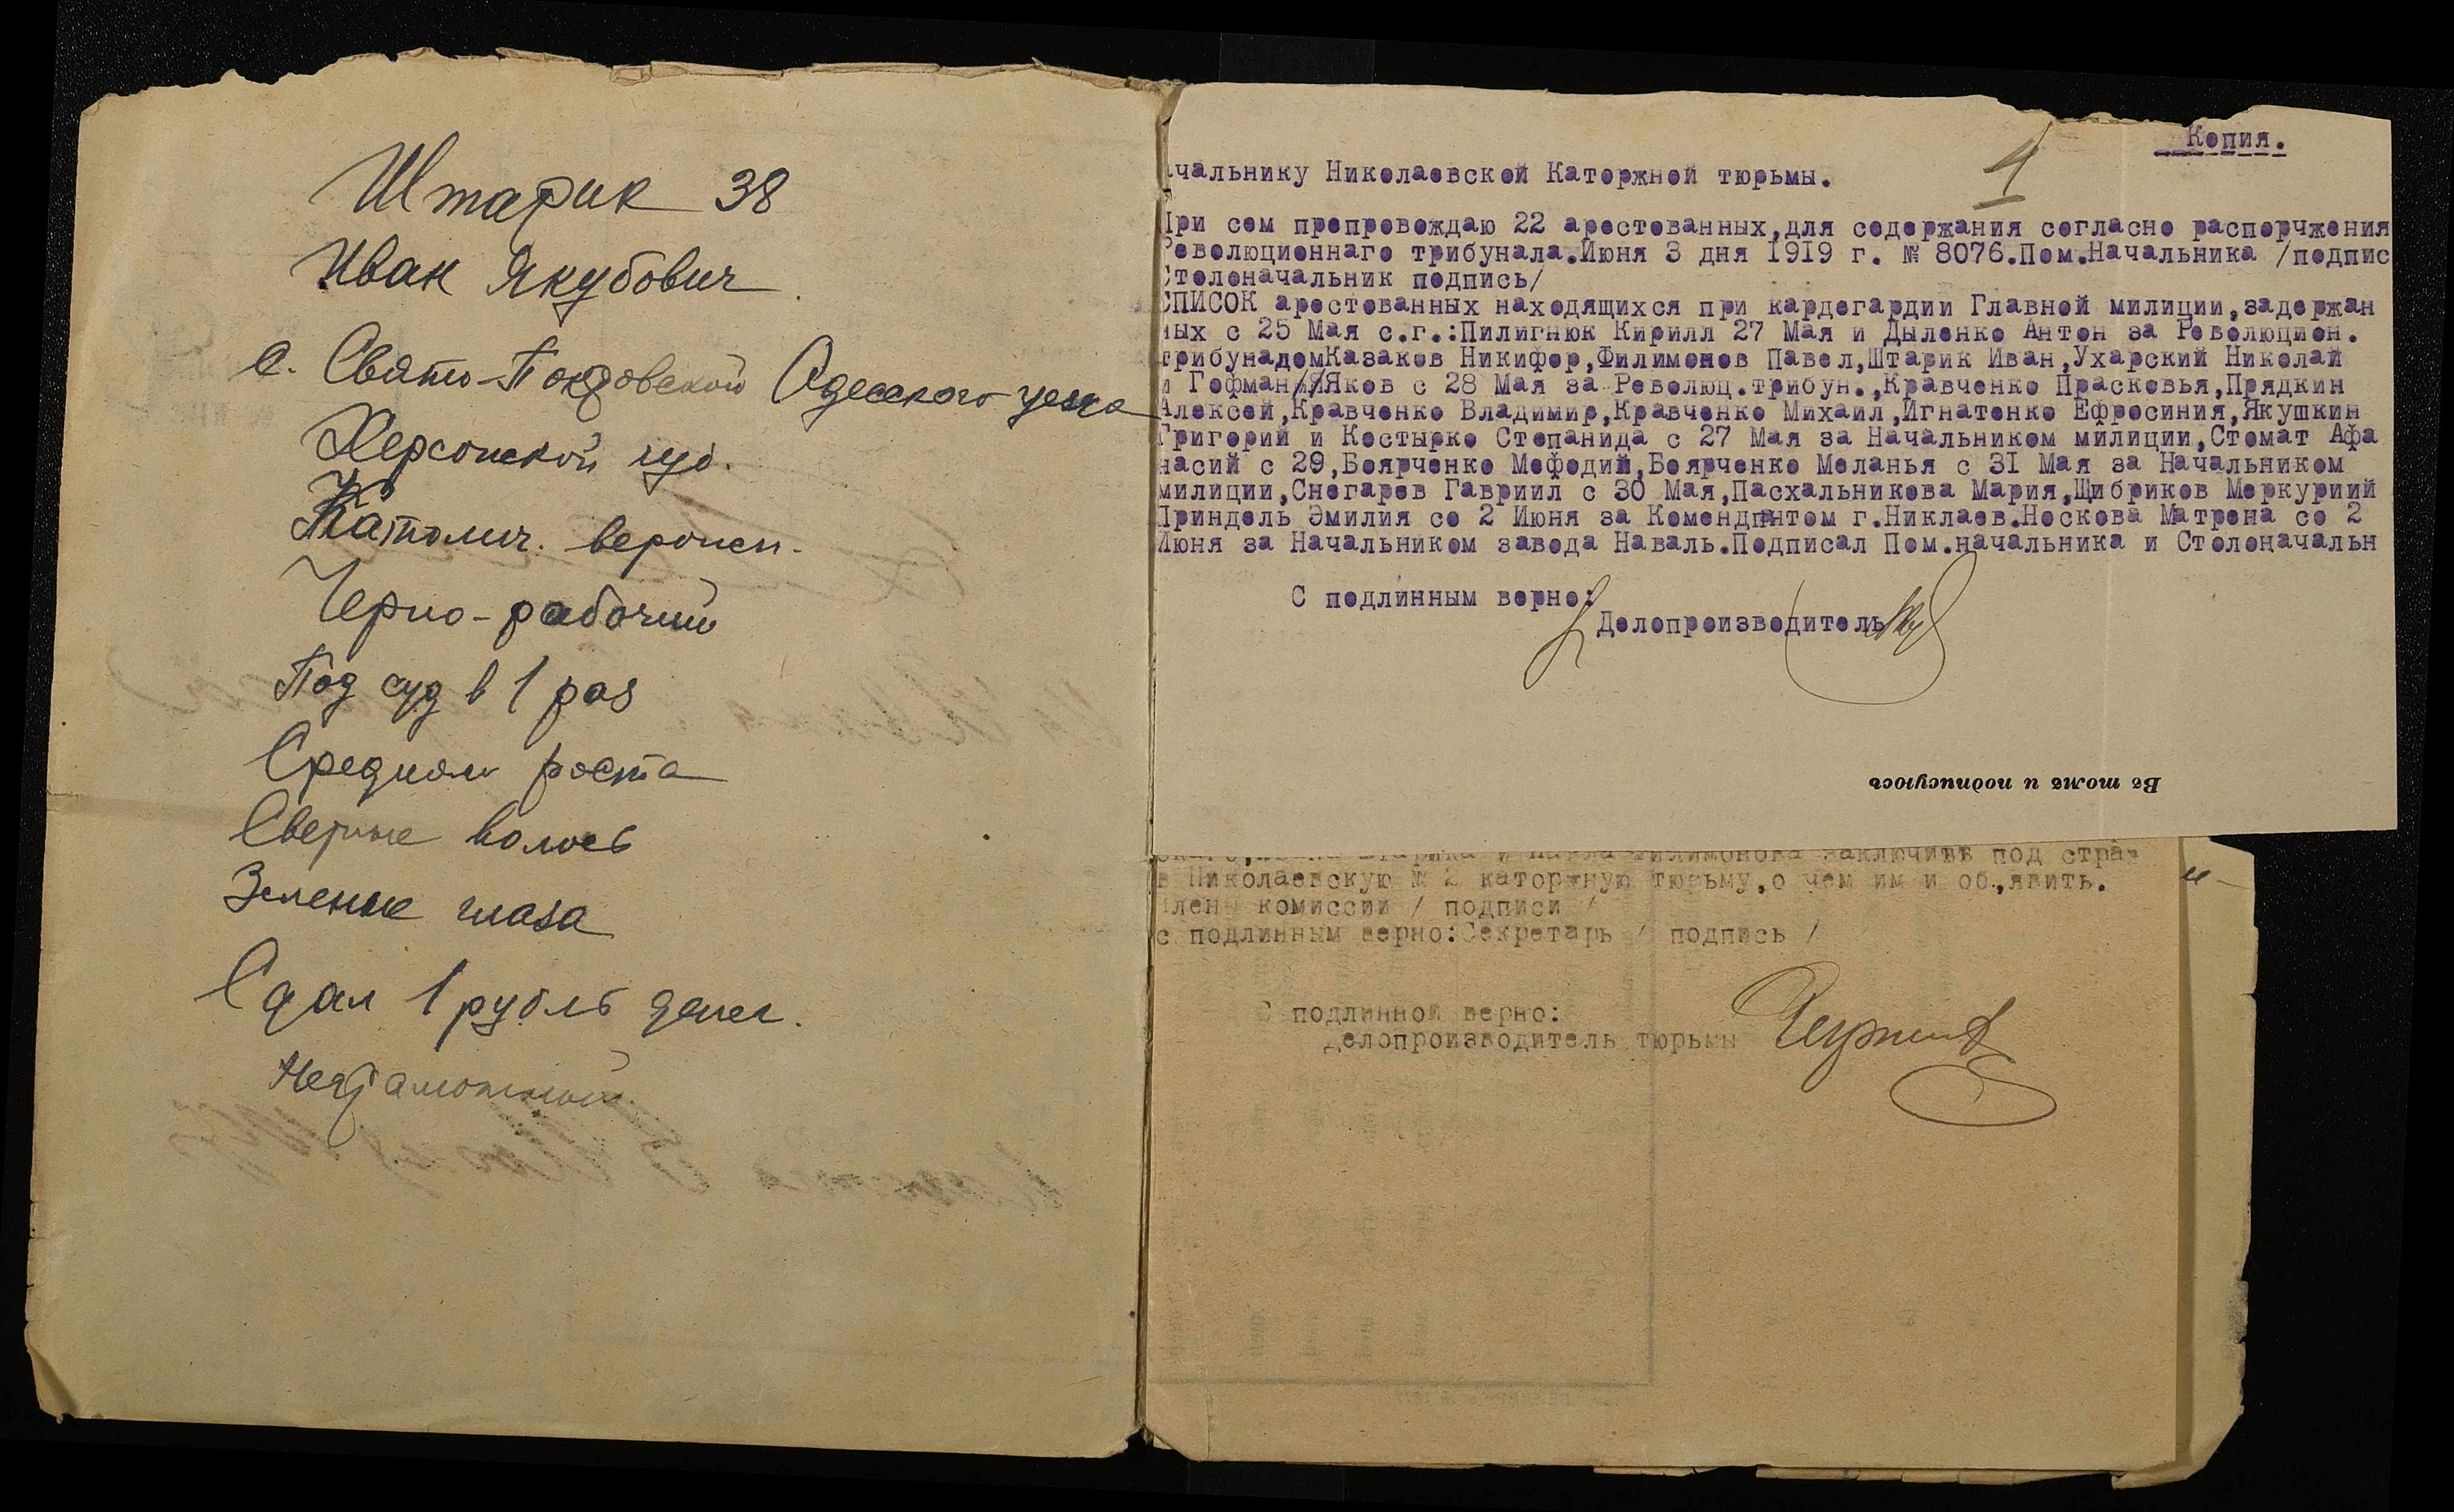 Штарик 38
Иван Якубович
с. Свято-Покровской Одесского уезда
Херсонской губ.
Католич. вероисп.
Черно-рабочий
Под суд в 1 раз
Средном роста
Светлые волосы
Зеленые глаза
Сдал 1 рубль денег.
Неграмотный
Копия.
4
ачальнику Николаевской Каторжной тюрьмы.
При сем препровождаю 22 арестованных,для содержания согласно распорчжения
Революционнаго трибунала.Июня 3 дня 1919 г. № 8076.Пом.Начальника /подпис
Столоначальник подпись/
СПИСОК арестованных находящихся при кардегардии Главной милиции,задержан
ных с 25 Мая с.г.:Пилигнюк Кирилл 27 Мая и Дыленко Антон за Революцион.
трибунадомКазаков Никифор,Филимонов Павел,Штарик Иван,Ухарский Николай
и Гофман//Яков с 28 Мая за Революц.трибун.,Кравченко Прасковья,Прядкин
Алексей,Кравченко Владимир,Кравченко Михаил,Игнатенко Ефросиния,Якушкин
Григорий и Костырко Степанида с 27 Мая за Начальником милиции,Стомат Афа
насий с 29,Боярченко Мефодий,Боярченко Меланья с 31 Мая за Начальником
милиции,Снегарев Гавриил с 30 Мая,Пасхальникова Мария,Щибриков Меркуриий
Приндель Эмилия со 2 Июня за Комендантом г.Никлаев.Носкова Матрена со 2
Июня за Начальником завода Наваль.Подписал Пом.начальника и Столоначальн
С подлинным верно:
Делопроизводитель
Въ томъ и подписуюсь
Штарика и Павла Филимонова заключить под стра
в Николаевскую № 2 каторжную тюрьму,о чем им и об,явить.
Члены комиссии / подписи /
с подлинным верно:Секретарь / подпись /
С подлинной верно:
делопроизводитель тюрьмы